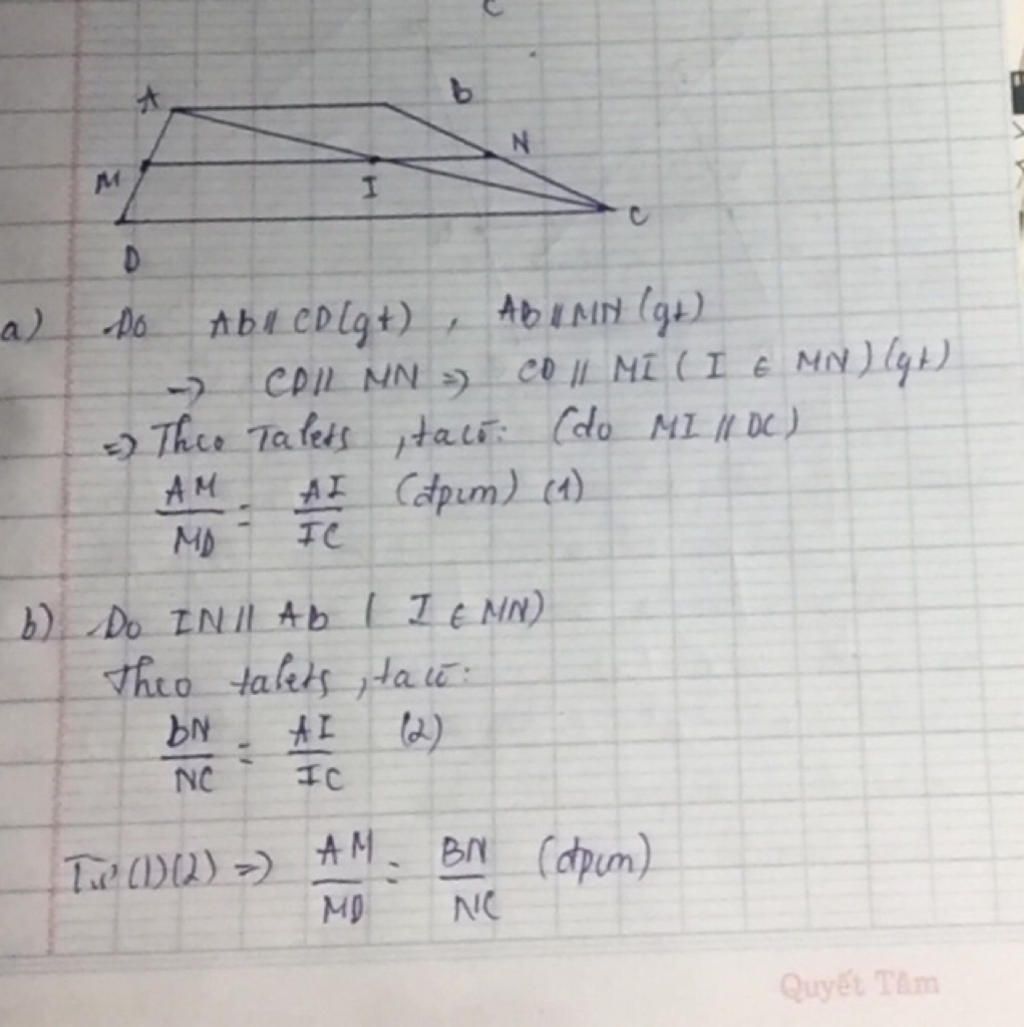 C
A
B
N
M
I
C
D
a) Do AB // CD (gt), AB // MN (gt)
→ CD // MN => CD // MI ( I ∈ MN) (gt)
=> Theo Talets, ta có: (do MI // DC)
AM/MD = AI/IC (đpcm) (1)
b) Do IN // AB ( I ∈ MN)
Theo talets, ta có:
BN/NC = AI/IC (2)
Từ (1)(2) => AM/MD = BN/NC (đpcm)
Quyết Tâm